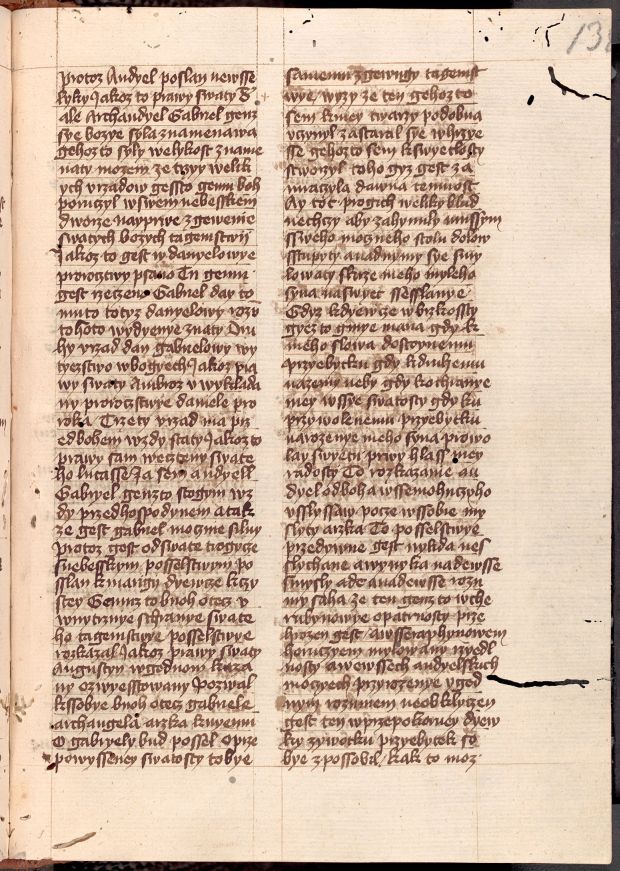 protoz Andyel poslan newsse
lyky Jakoz to prawy swaty
ale Archandyel Gabriel genz
sye bozye syla znamenawa
gehozto syly welykost zname
naty mozem ze trzyy welik
ych vrzadow gessto gemu boh
poruczyl wswem nebesskem
dworze nayprwe zgewenie
swatych bozych tagemstwij
Jakoz to gest w danyelowye
proroztwy psano Tu gemu
gest rzeczeno Gabriel day to
muto totyz danyelowy rozu
tohoto wydyenye znaty Dru
hy vrzad dan gabrielowy wy
tyezstwo wbogyech Jakoz pra
wy swaty Ambroz v wyklada
ny proroztwye daniele pro
roka Trzety vrzad ma prz
edbohem wzdy staty Jakoz to
prawy sam weczteny swate
ho lucasse Ja sem andyell
Gabryel genzto stogym wz
dy przedhospodynem a tak
ze gest gabriel moczne silny
protoz gest od swate trogycze
snebesskym posselstwym po
slan k marygi dyewcze krzy
stey Gemuz to buoh otecz v
wnytrznye schranye swate
ho tagemstwye posselstwye
rozkazal Jakoz prawy swaty
Augustyn wgednom kaza
ny ozwyesstowany Pozwal
kssobye buoh otecz gabriele
archangela arzka knyemu
O gabryely bud possel Oprze
powysseney swatosty tobye
samemu zgewugy tagemst
wye, wyzy ze ten gehozto
sem kmey twarzy podobna
vczynyl zastaral sye whrzye
sse gehozto sem kswyetlosty
stworzyl toho gyz gest za
mraczyla dawna temnost
Ay tot mogich weliky blud
nechczy aby zahynuly anissym
sweho mocznego stolu dolow
sstupyty a nad nymy sye smy
lowaty skrze meho myleho
syna naswyet ssesslanye
Gdyz kdyewcze wbrzkossty
gyezto gmye maria gdy k
meho slowa dostoynemu
przyebytku gdy kduchemu
nazemy neby gdy kochranye
mey wssye swatosty gdy ku
przywolenemu przyebytku
narozenye meho syna prowo
lay swyety prwy hlass mey
radosty To rozkazanie an
dyel odboha wssemohuczyho
vslyssaw pocze wssobie my
slyty arzka To posselstwye
przedywne gest nykda nes
slychane a wynyka nadewsse
smysly ade a nadewsse rozu
my saha ze ten genz to wche
rubynowye opatrnosty prze
hrozen gest / a wseraphynowem
horuczym mylowany nyedl
nosty a wewssech andyelskuch
moczyech przyrozenye vged
nym rozumem neobklyczen
gest ten wprzepokorney dyew
ky zywotku przyebytek so
bye zpossobil / kak to moz